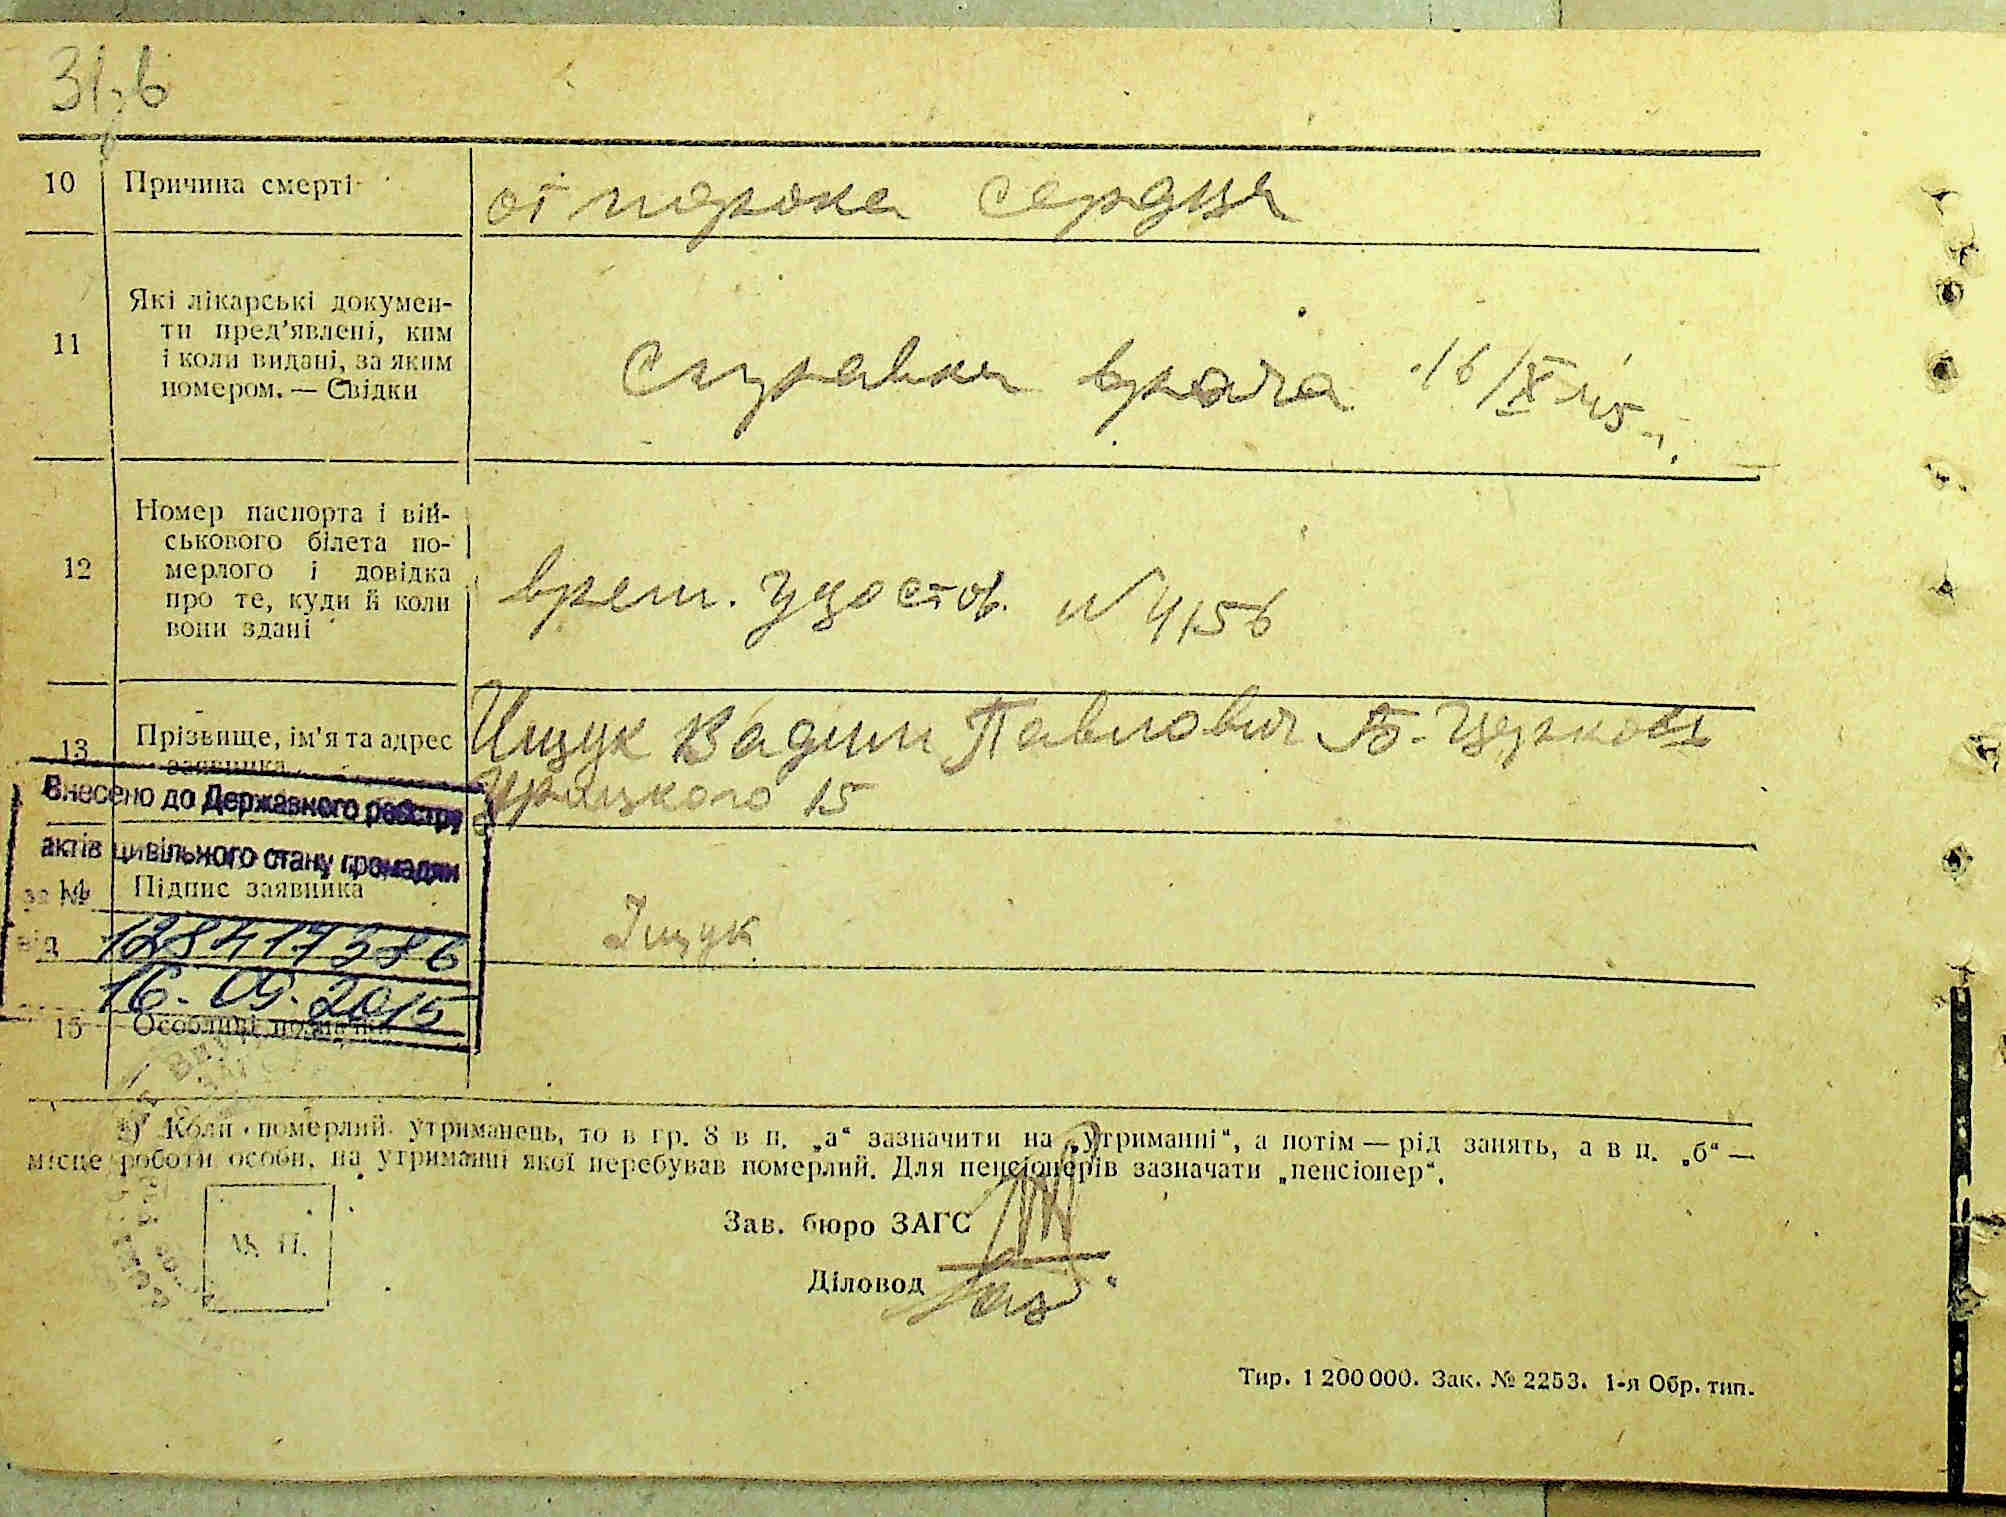 10 Причина смерті от порока сердца
11 Які лікарські докумен-
ти пред'явлені, ким
і коли видані, за яким
номером. — Свідки
Справка врача 16/X 45
12 Номер паспорта і вій-
ськового білета по-
мерлого і довідка
про те, куди й коли
вони здані
врем. удостов. № 4156
13 Прізвище, ім'я та адрес
заявника
Ищук Вадим Павлович Б-Церковь
Урицкого 15
Внесено до Державного реєстру
актів цивільного стану громадян
за № 128417386
від 16.09.2015
14 Підпис заявника Іщук
15 Особливі позначки
*) Коли померлий утриманець, то в гр. 8 в п. „а“ зазначити на „утриманні“, а потім — рід занять, а в п. „б“ —
місце роботи особи, на утриманні якої перебував померлий. Для пенсіонерів зазначати „пенсіонер“.
М. П.
Зав. бюро ЗАГС
Діловод
Тир. 1 200 000. Зак. № 2253. 1-я Обр. тип.